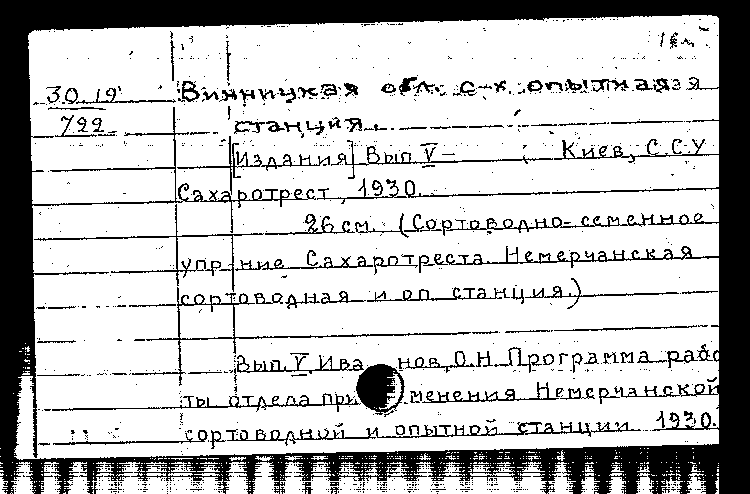 30.19 Винницкая обл. с-х. опытная
722 станция.
[Издания] Вып V — ; Киев, С.С.У
Сахаротрест, 1930.
26 см. (Сортоводно-семенное
упр-ние Сахаротреста. Немерчанская
сортоводная и оп. станция.)
Вып. V Иванов, О.Н. Программа рабо
ты отдела применения Немерчанской
сортоводной и опытной станции 1930.